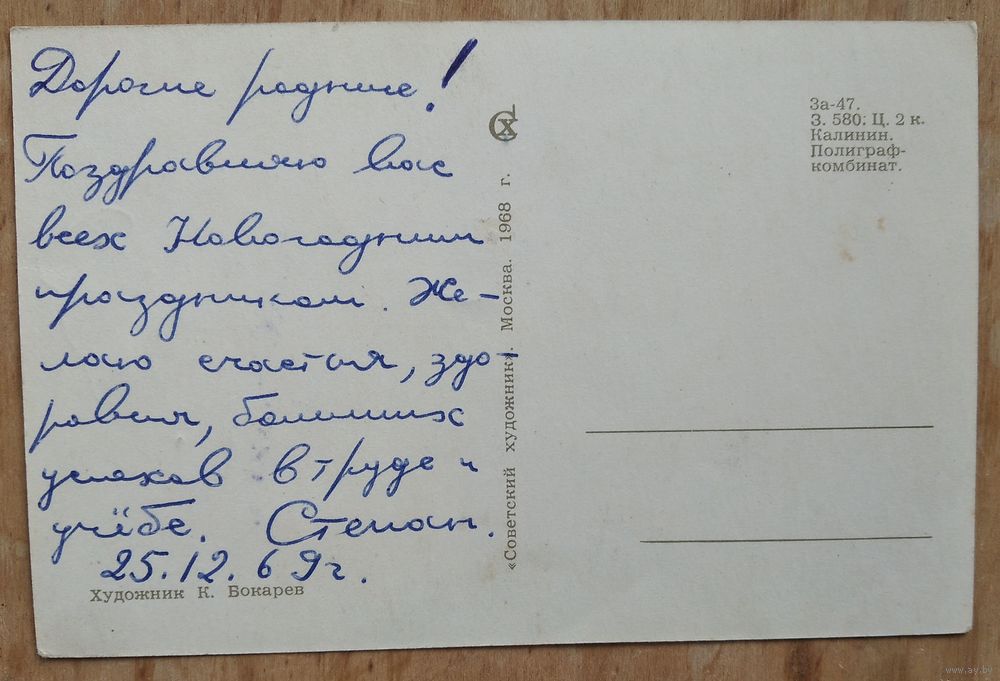 Дорогие родные!
Поздравляю вас
всех Новогодним
праздником. Же-
лаю счастья, здо-
ровья, больших
успехов в труде и
учёбе. Степан.
25.12.69г.
Художник К. Бокарев
«Советский художник». Москва. 1968 г.
СХ
За-47.
З. 580. Ц. 2 к.
Калинин.
Полиграф-
комбинат.
www.ay.by